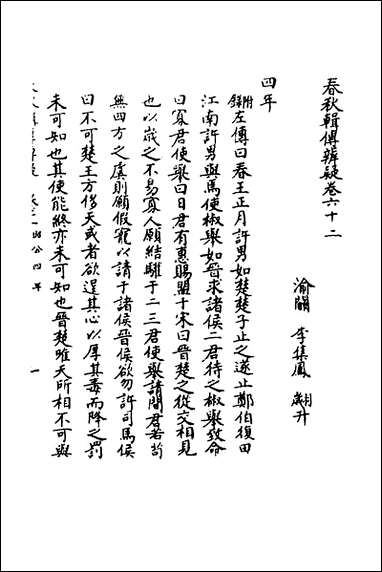 春秋輯傳辨疑卷六十二
渝關 李集鳳 翽升
四年
附錄左傳曰春王正月許男如楚楚子止之遂止鄭伯復田
江南許男與焉使椒舉如晉求諸侯二君待之椒舉致命
曰寡君使舉曰日君有惠賜盟于宋曰晉楚之從交相見
也以歲之不易寡人願結驩于二三君使舉請間君若苟
無四方之虞則願假寵以請于諸侯晉侯欲勿許司馬侯
曰不可楚王方侈天或者欲逞其心以厚其毒而降之罰
未可知也其使能終亦未可知也晉楚唯天所相不可與
昭公四年
一